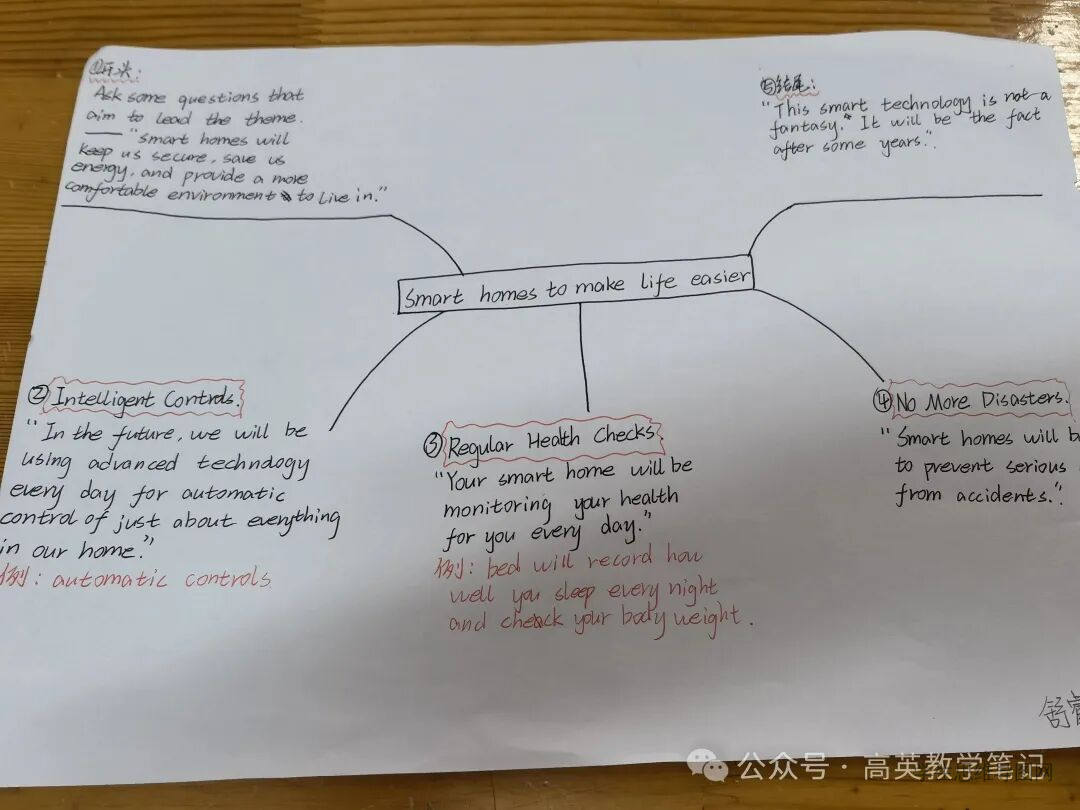 ①开头:
Ask some questions that
aim to lead the theme.
—— "Smart homes will
keep us secure, save us
energy, and provide a more
comfortable environment to live in."
⑤结尾:
"This smart technology is not a
fantasy." It will be the fact
after some years.".
Smart homes to make life easier
② Intelligent Controls.
"In the future, we will be
using advanced technology
every day for automatic
control of just about everything
in our home."
例: automatic controls
③ Regular Health Checks.
"Your smart home will be
monitoring your health
for you every day."
例: bed will record how
well you sleep every night
and check your body weight.
④ No More Disasters.
"Smart homes will b
to prevent serious
from accidents."
舒
公众号 · 高英教学笔记